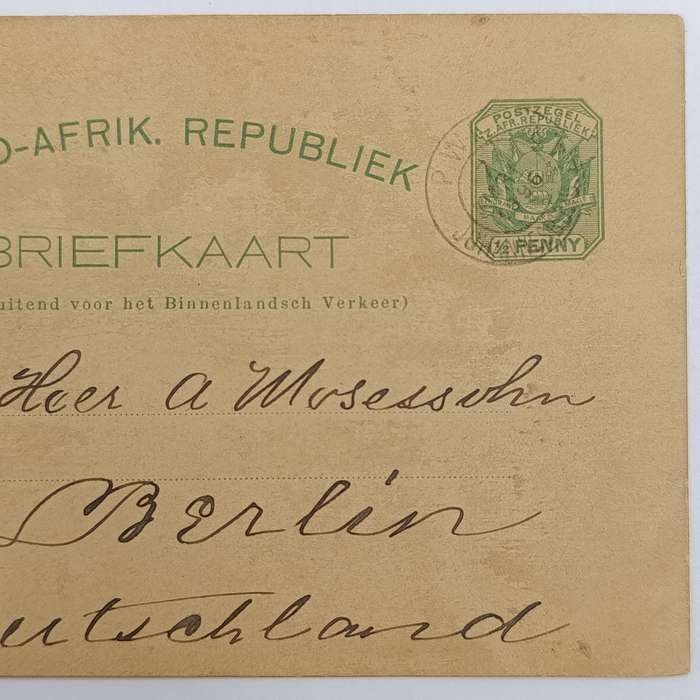 D-AFRIK. REPUBLIEK
POSTZEGEL
Z.AFR.REPUBLIEK
½ PENNY
BRIEFKAART
uitend voor het Binnenlandsch Verkeer)
Heer A Mosessohn
Berlin
eutschland